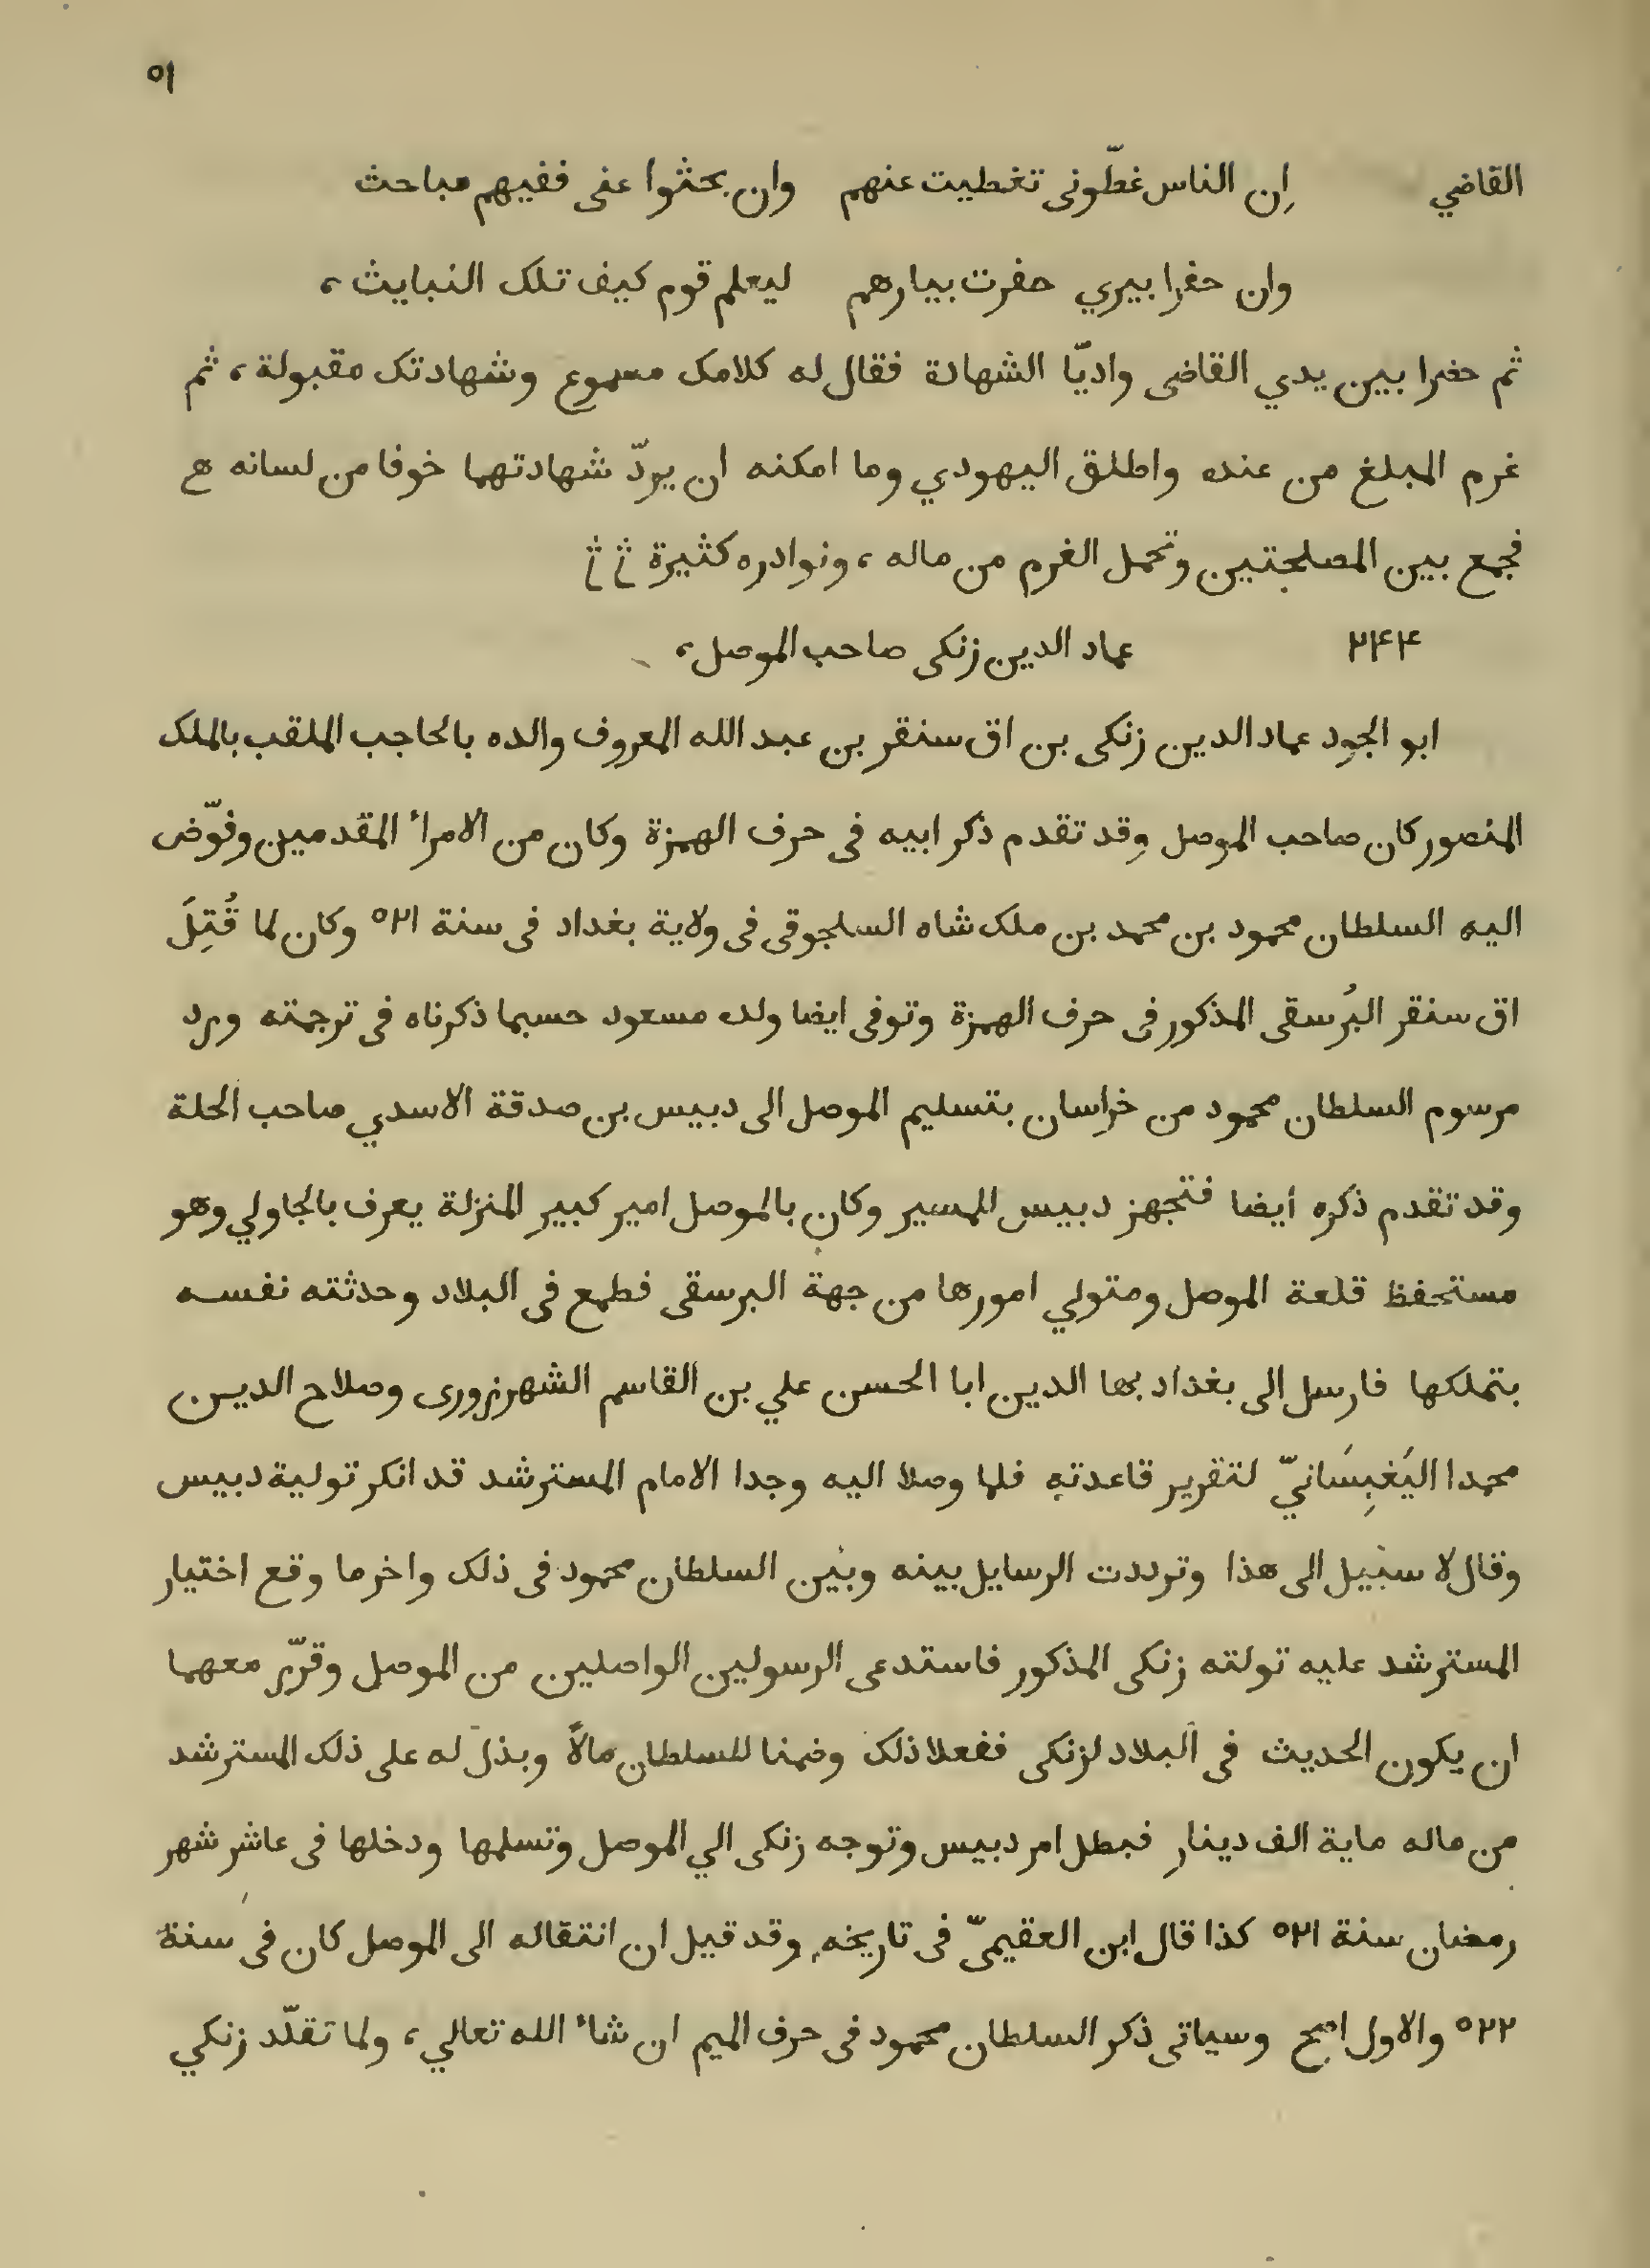 ٥١
القاضي إن الناس غطّونى تغطيت عنهم وان بحثوا عنى ففيهم مباحث
وان حفرا بيري حفرت بيارهم ليعلم قوم كيف تلك النبايث،
ثم حضرا بين يدي القاضى واديّا الشهادة فقال له كلامك مسموع وشهادتك مقبولة، ثم
غرم المبلغ من عنده واطلق اليهودي وما امكنه ان يردّ شهادتهما خوفا من لسانه
فجمع بين المصلحتين وتحمل الغرم من ماله، ونوادره كثيرة
٢٤٤ عماد الدين زنكى صاحب الموصل،
ابو الجود عماد الدين زنكى بن اق سنقر بن عبد الله المعروف والده بالحاجب الملقب بالملك
المنصور كان صاحب الموصل وقد تقدم ذكر ابيه فى حرف الهمزة وكان من الامراء المقدمين وفوّض
اليه السلطان محمود بن محمد بن ملك شاه السلجوقى فى ولاية بغداد فى سنة ٥٢١ وكان لما قُتِلَ
اق سنقر البُرسقى المذكور فى حرف الهمزة وتوفى ايضا ولده مسعود حسبما ذكرناه فى ترجمته ورد
مرسوم السلطان محمود من خراسان بتسليم الموصل الى دبيس بن صدقة الاسدي صاحب الحلة
وقد تقدم ذكره أيضا فتجهز دبيس للمسير وكان بالموصل امير كبير المنزلة يعرف بالجاولي وهو
مستحفظ قلعة الموصل ومتولي امورها من جهة البرسقى فطمع فى البلاد وحدثته نفسه
بتملكها فارسل الى بغداد بها الدين ابا الحسن علي بن القاسم الشهرزورى وصلاح الدين
محمدا اليَغبِسَانيّ لتقرير قاعدته فلما وصلا اليه وجدا الامام المسترشد قد انكر تولية دبيس
وقال لا سبيل الى هذا وترددت الرسايل بينه وبين السلطان محمود فى ذلك واخر ما وقع اختيار
المسترشد عليه تولته زنكى المذكور فاستدعى الرسولين الواصلين من الموصل وقرّر معهما
ان يكون الحديث فى البلاد لزنكى ففعلا ذلك وضمنا للسلطان مالاً وبذل له على ذلك المسترشد
من ماله ماية الف دينار فبطل امر دبيس وتوجه زنكى الي الموصل وتسلمها ودخلها فى عاشر شهر
رمضان سنة ٥٢١ كذا قال ابن العقيميّ فى تاريخه وقد قيل ان انتقاله الى الموصل كان فى سنة
٥٢٢ والاول اصح وسياتى ذكر السلطان محمود فى حرف الميم ان شاء الله تعالي، ولما تقلّد زنكي